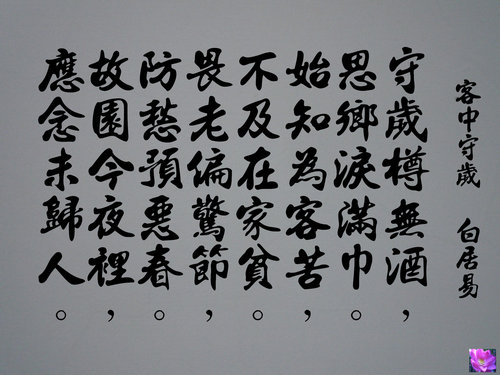 客中守歲 白居易
守歲樽無酒，
思鄉淚滿巾。
始知為客苦，
不及在家貧。
畏老偏驚節，
防愁預惡春。
故園今夜裡，
應念未歸人。